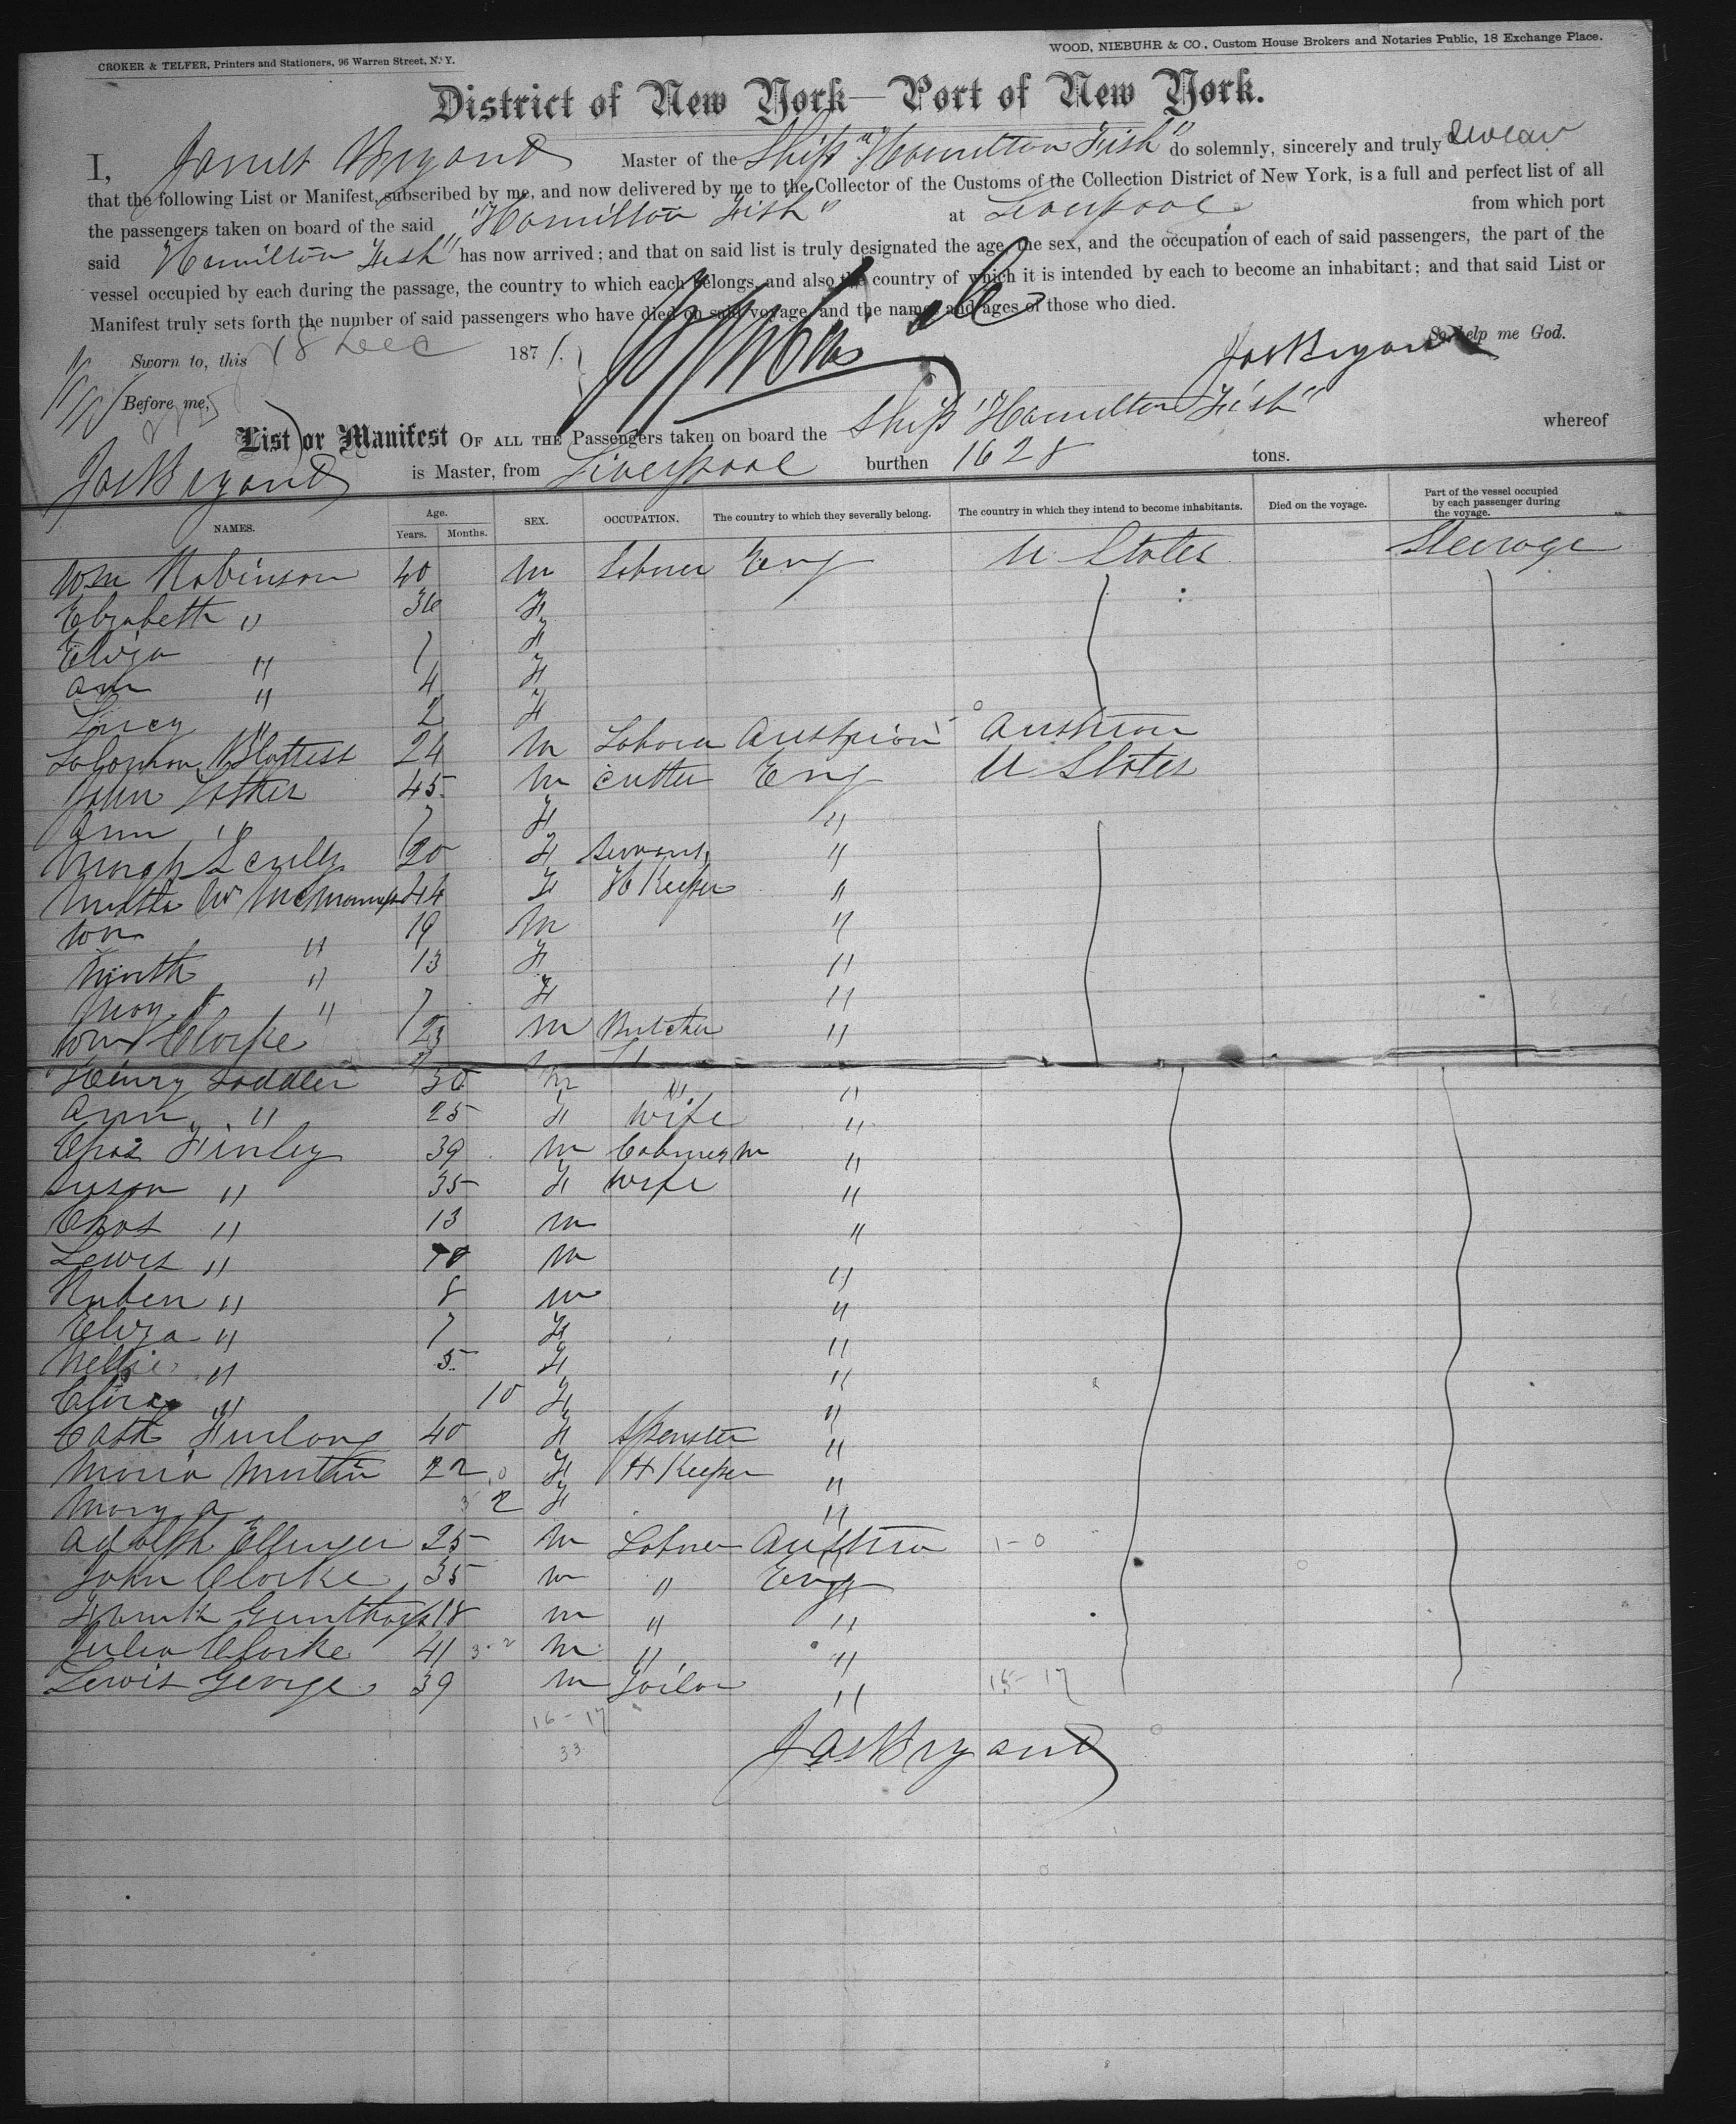 CROKER & TELFER, Printers and Stationers, 96 Warren Street, N. Y.
WOOD, NIEBUHR & CO., Custom House Brokers and Notaries Public, 18 Exchange Place.
District of New York—Port of New York.
I, James Bryand Master of the Ship "Hamilton Fish" do solemnly, sincerely and truly swear
that the following List or Manifest, subscribed by me, and now delivered by me to the Collector of the Customs of the Collection District of New York, is a full and perfect list of all
the passengers taken on board of the said "Hamilton Fish" at Liverpool from which port
said Hamilton Fish" has now arrived; and that on said list is truly designated the age, the sex, and the occupation of each of said passengers, the part of the
vessel occupied by each during the passage, the country to which each belongs, and also the country of which it is intended by each to become an inhabitant; and that said List or
Manifest truly sets forth the number of said passengers who have died on said voyage, and the names and ages of those who died.
So help me God.
Sworn to, this 18 Dec 1871. JasBryand
Before me,
List or Manifest OF ALL THE Passengers taken on board the Ship "Hamilton Fish" whereof
JasBryand is Master, from Liverpool burthen 1628 tons.
NAMES. Age. Years. Months. SEX. OCCUPATION. The country to which they severally belong. The country in which they intend to become inhabitants. Died on the voyage. Part of the vessel occupied by each passenger during the voyage.
Wm Robinson 40 M Labuer Eng U States Steerage
Elizabeth " 36 F
Eliza " 7 F
Ann " 4 F
Lucy " 2 F
Solomon 24 M Laborer Austrian Austrian
John 45 M Cutter Eng U States
Ann " 7 F "
Margh Scully 20 F Servant "
Martha W McManus 44 F H Keeper "
Wm " 19 M "
" 13 F "
" 7 F "
Wm Clarke 23 M Butcher "
Henry Saddler 30 M " "
Ann " 25 F Wife "
Chas Finley 39 M "
Susan " 35 F Wife "
Chas " 13 M "
Lewis " 10 M "
Ruben " 8 M "
Eliza " 7 F "
Nellie " 5 F "
Clira " 10 F "
Cath Furlong 40 F Spenster "
Maria Martin 22 F H Keeper "
Mary a 2 F "
Adolph Ellinger 25 M Labuer Austria 1-0
John Clarke 35 M " Eng
Frank 18 M " "
Julia Clarke 41 3-2 M " "
Lewis George 39 M Tailor " 16-17
16-17
33
JasBryand